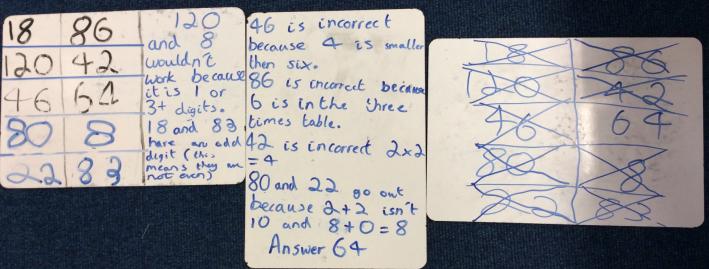 18 86
120 42
46 64
80 8
22 83
120
and 8
wouldn't
work because
it is 1 or
3+ digits.
18 and 83
have an odd
digit (this
means they are
not even)
46 is incorrect
because 4 is smaller
then six.
86 is incorrect because
6 is in the three
times table.
42 is incorrect 2x2
=4
80 and 22 go out
because 2+2 isn't
10 and 8+0=8
Answer 64
18 86
120 42
46 64
80 8
22 83